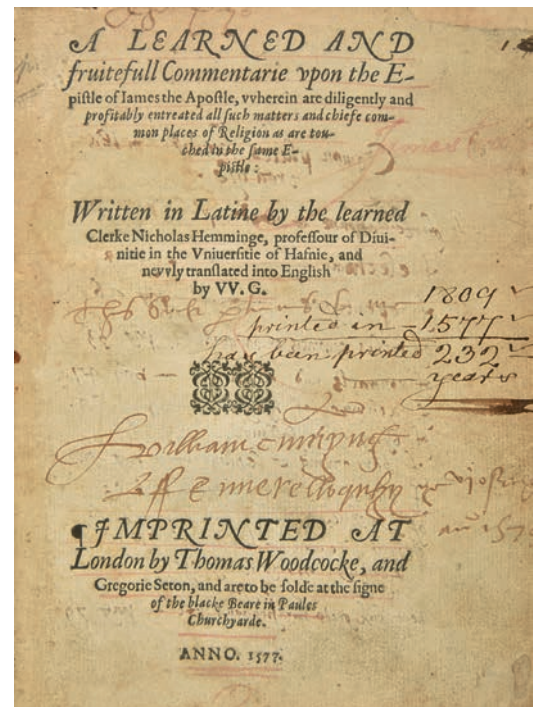 A LEARNED AND
fruitefull Commentarie vpon the E-
pistle of Iames the Apostle, vvherein are diligently and
profitably entreated all such matters and chiefe com-
mon places of Religion as are tou-
ched in the same E-
pistle:
Written in Latine by the learned
Clerke Nicholas Hemminge, professour of Diui-
nitie in the Vniuersitie of Hafnie, and
nevvly translated into English
by VV. G.
1809
printed in 1577
has been printed 232
years
William
¶IMPRINTED AT
London by Thomas Woodcocke, and
Gregorie Seton, and are to be solde at the signe
of the blacke Beare in Paules
Churchyarde.
ANNO. 1577.